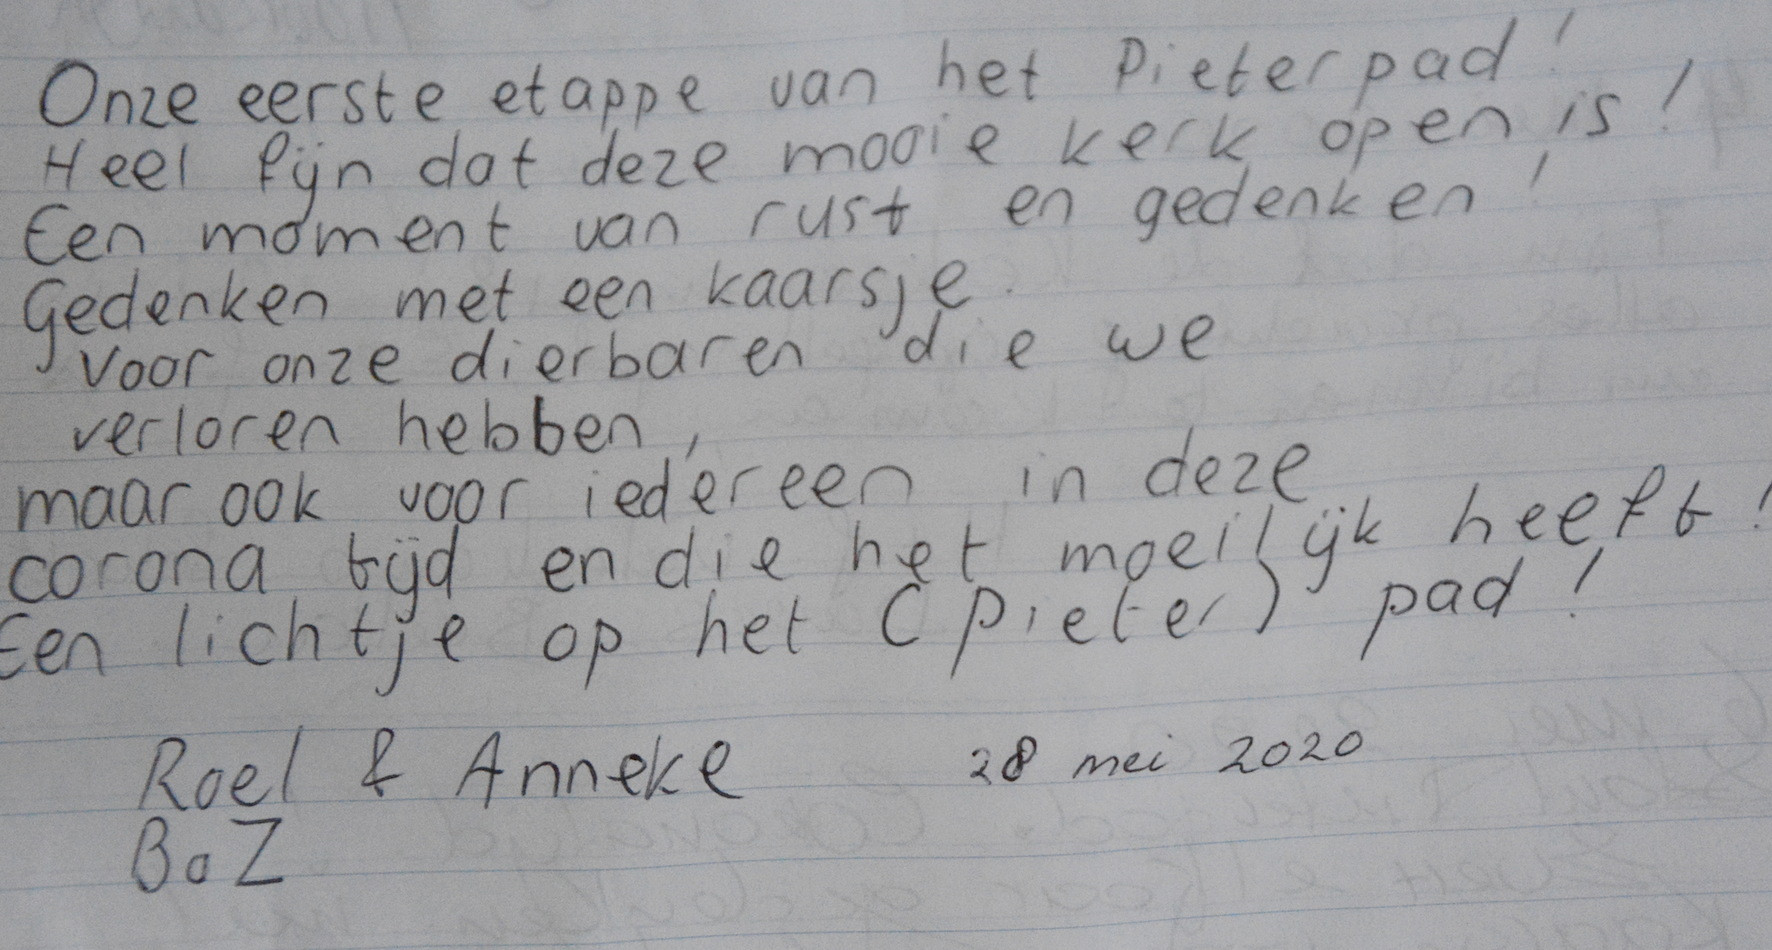 Onze eerste etappe van het Pieterpad!
Heel fijn dat deze mooie kerk open is!
Een moment van rust en gedenken!
Gedenken met een kaarsje.
voor onze dierbaren die we
verloren hebben,
maar ook voor iedereen in deze
corona tijd en die het moeilijk heeft!
Een lichtje op het (Pieter) pad!
Roel & Anneke 28 mei 2020
BoZ